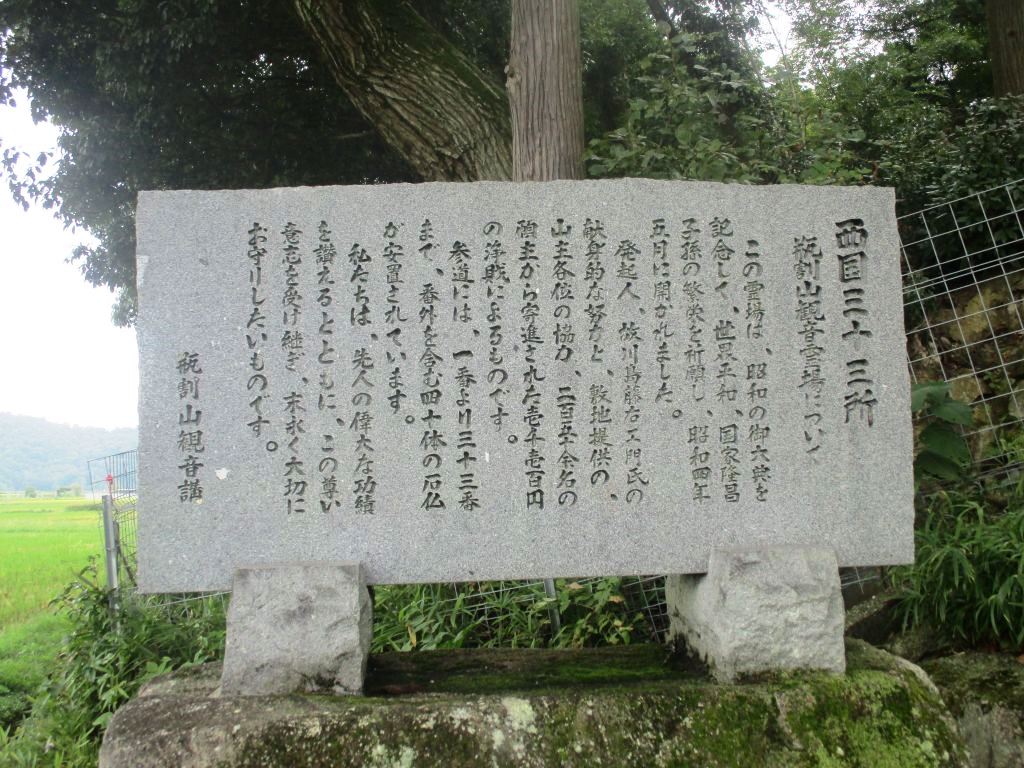 西国三十三所
瓶割山観音霊場について
この霊場は、昭和の御大典を
記念して、世界平和、国家隆昌
子孫の繁栄を祈願し、昭和四年
五月に開かれました。
発起人、故川島藤左エ門氏の
献身的な努力と、敷地提供の、
山主各位の協力、二百五十余名の
願主から寄進された壱千壱百円
の浄財によるものです。
参道には、一番より三十三番
まで、番外を含む四十体の石仏
が安置されています。
私たちは、先人の偉大な功績
を讃えるとともに、この尊い
意志を受け継ぎ、末永く大切に
お守りしたいものです。
瓶割山観音講